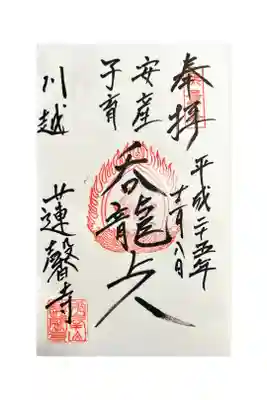 奉拝
平成二十五年
十一月八日
安産
子育
呑龍上人
川越
蓮馨寺